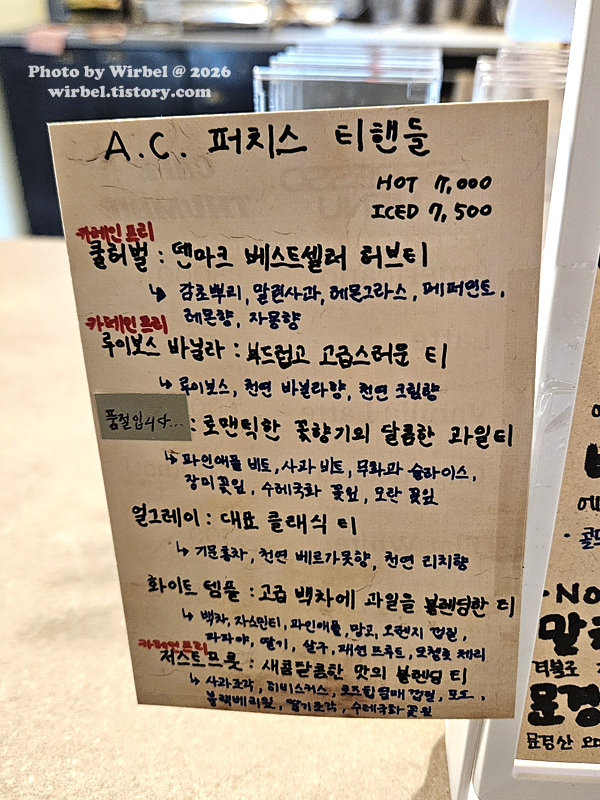 Photo by Wirbel @ 2026
wirbel.tistory.com
A.C. 퍼치스 티핸들
HOT 7,000
ICED 7,500
카페인 프리
쿨허벌 : 덴마크 베스트셀러 허브티
↳ 감초뿌리, 말린사과, 레몬그라스, 페퍼민트,
레몬향, 자몽향
카페인 프리
루이보스 바닐라 : 부드럽고 고급스러운 티
↳ 루이보스, 천연 바닐라향, 천연 크림향
품절입니다...
: 로맨틱한 꽃향기의 달콤한 과일티
↳ 파인애플 비트, 사과 비트, 무화과 슬라이스,
장미꽃잎, 수레국화 꽃잎, 모란 꽃잎
얼그레이 : 대표 클래식 티
↳ 기문홍차, 천연 베르가못향, 천연 리치향
화이트 템플 : 고급 백차에 과일을 블렌딩한 티
↳ 백차, 자스민티, 파인애플, 망고, 오렌지 껍질,
파파야, 딸기, 살구, 패션프루트, 모렐로 체리
카페인 프리
저스트프룻 : 새콤달콤한 맛의 블렌딩 티
↳ 사과조각, 히비스커스, 로즈힙 열매 껍질, 포도,
블랙베리잎, 딸기조각, 수레국화 꽃잎
No
문경
문경산 오미